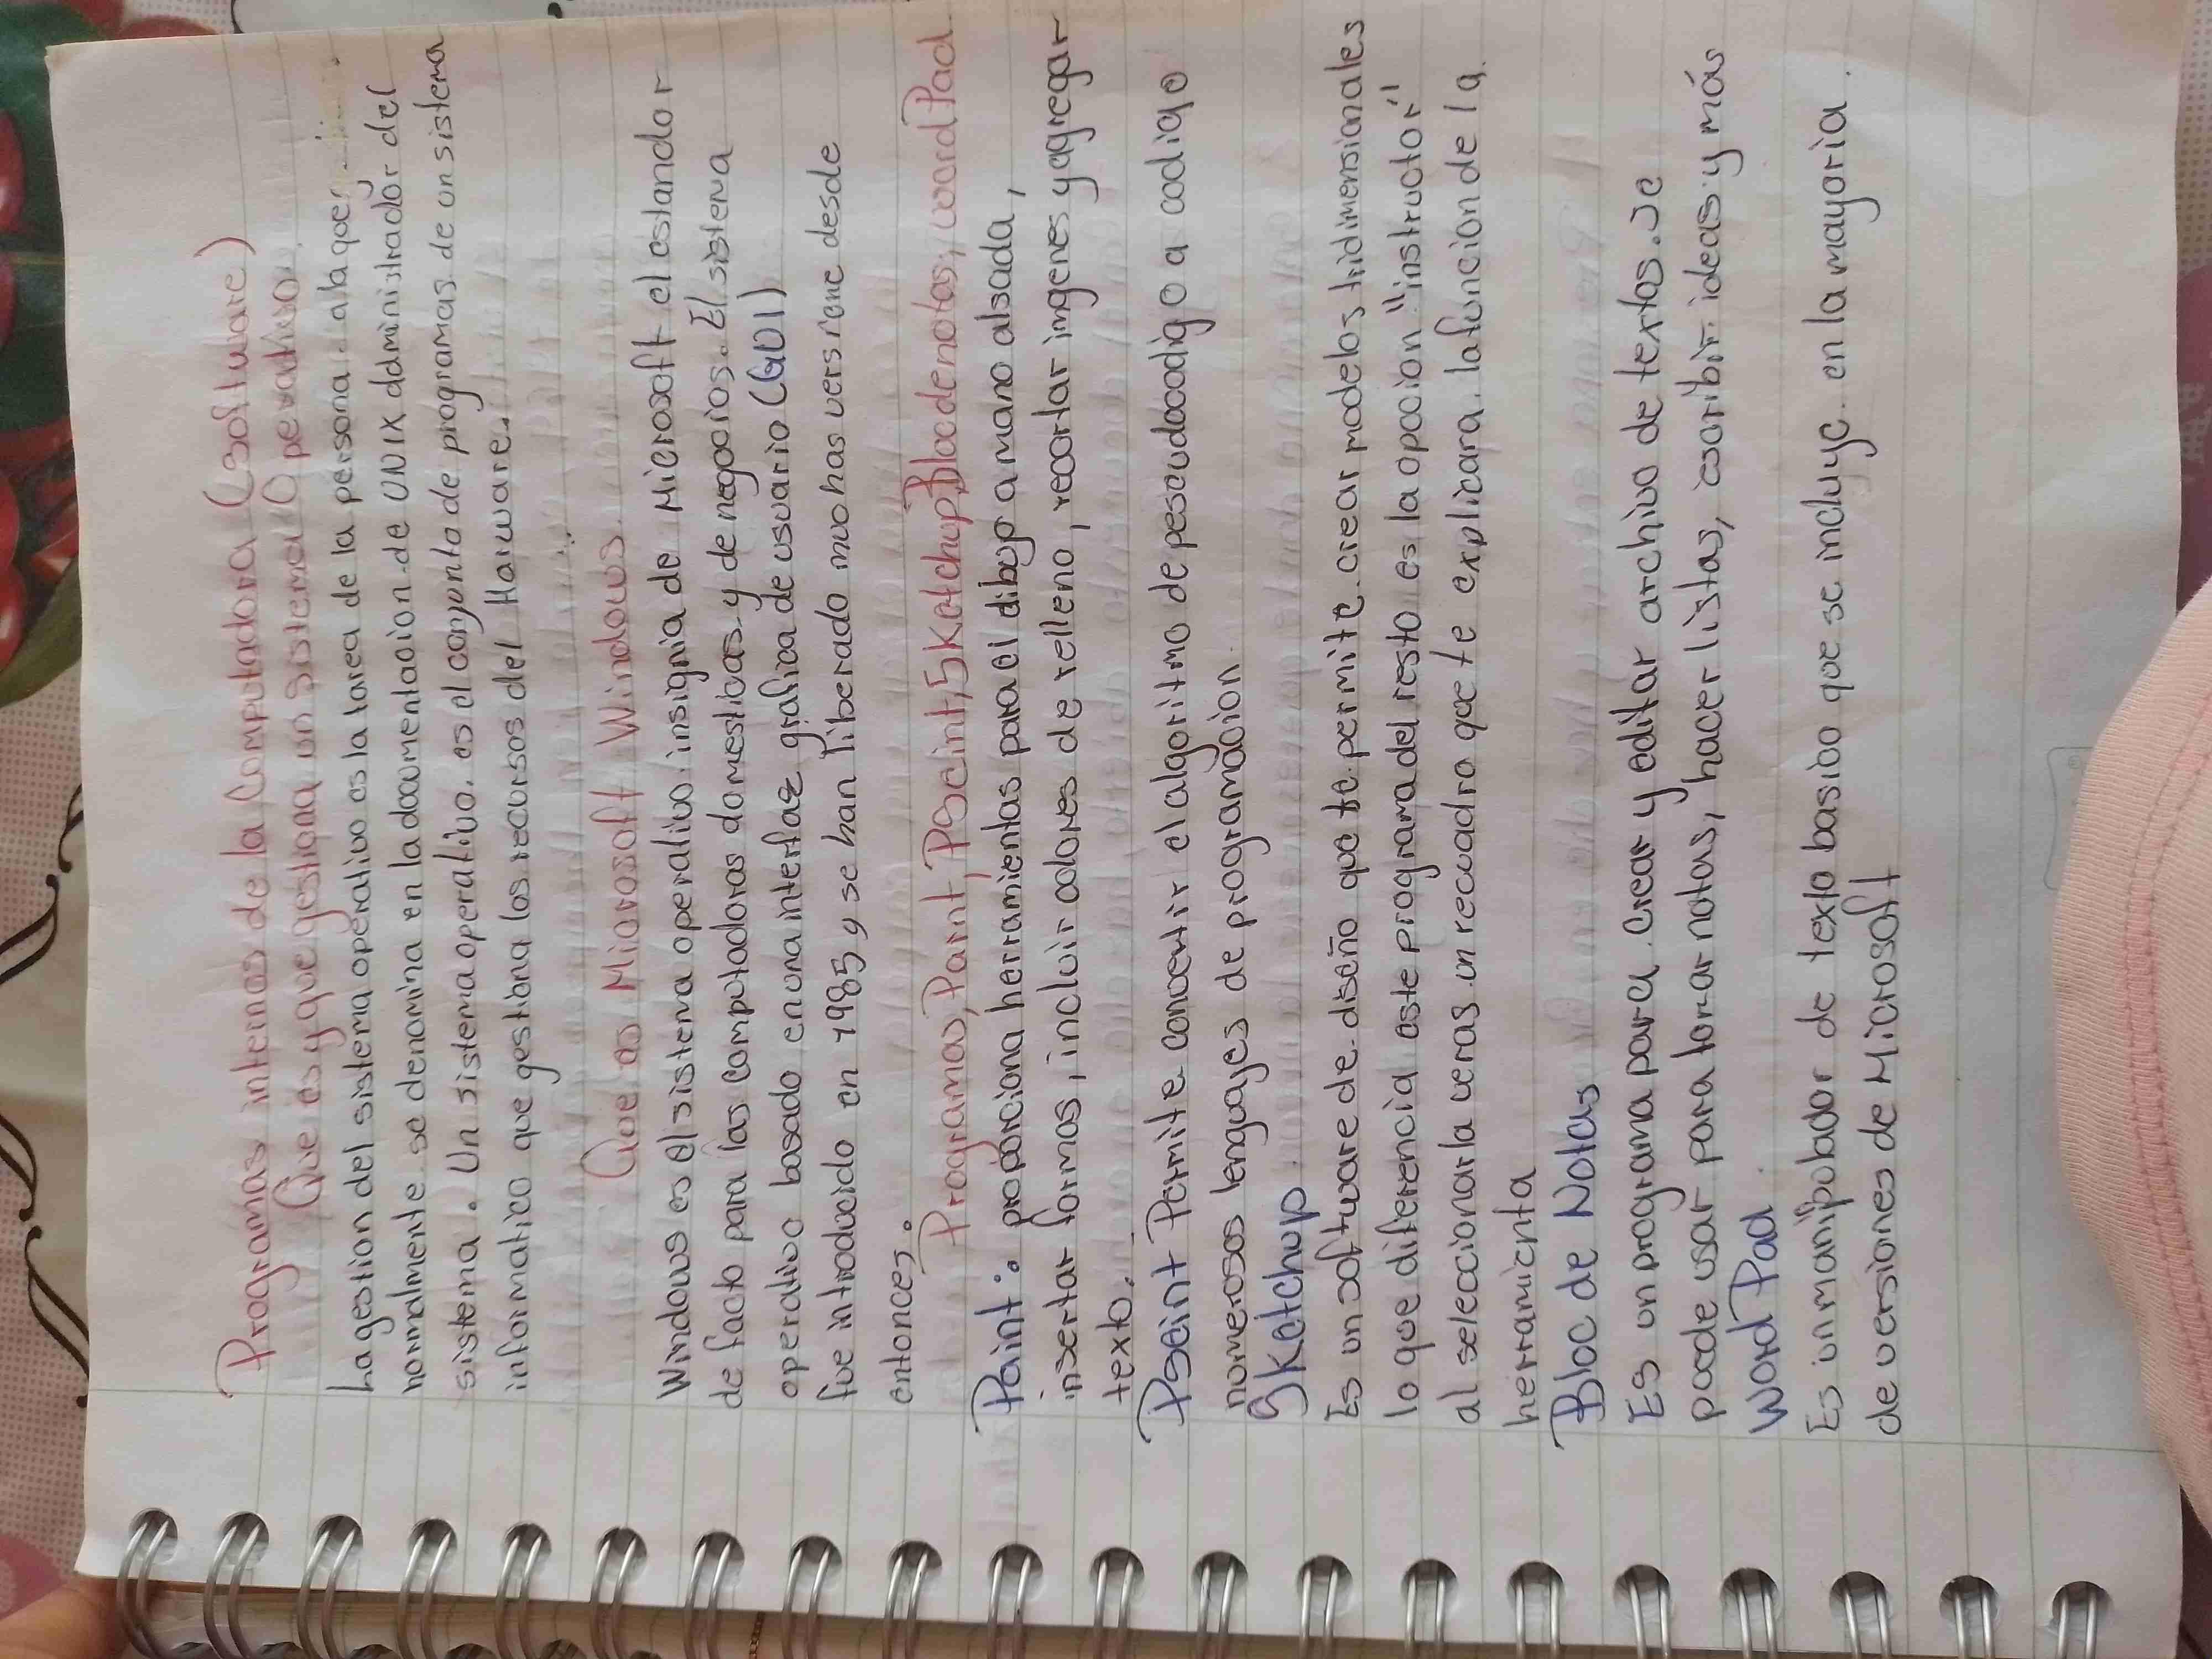 Programas internas de la Computadora (Software)
Que es y que gestiona un sistema Operativo
La gestion del sistema operativo es la tarea de la persona a la que
normalmente se denomina en la documentacion de UNIX administrador del
sistema. Un sistema operativo. es el conjunto de programas de un sistema
informatico que gestiona los recursos del Harware.
Que es Microsoft Windows
Windows es el sistema operativo insignia de Microsoft el estandar
de facto para las computadoras domesticas y de negocios. El sistema
operativo basado en una interfaz grafica de usuario (GUI)
fue introducido en 1985 y se han liberado muchas versione desde
entonces.
Programas, Paint, PSeint, Sketchup, Bloc de notas, word Pad
Paint: proporciona herramientas para el dibujo a mano alsada,
insertar formas, incluir colores de relleno, recortar imgenes y agregar
texto.
PSeint Permite convertir el algoritmo de peseudocodigo a codigo
numerosos lenguajes de programacion.
Sketchup
Es un software de diseño que te permite crear modelos tridimensionales
lo que diferencia este programa del resto es la opocion "instructor"
al seleccionarla veras un recuadro que te explicara la funcion de la
herramienta
Bloc de Notas
Es un programa para crear y editar archivo de textos. se
puede usar para tomar notas, hacer listas, escribir ideas y más
Word Pad
Es un manipulador de texto basico que se incluye en la mayoria
de versiones de Microsoft